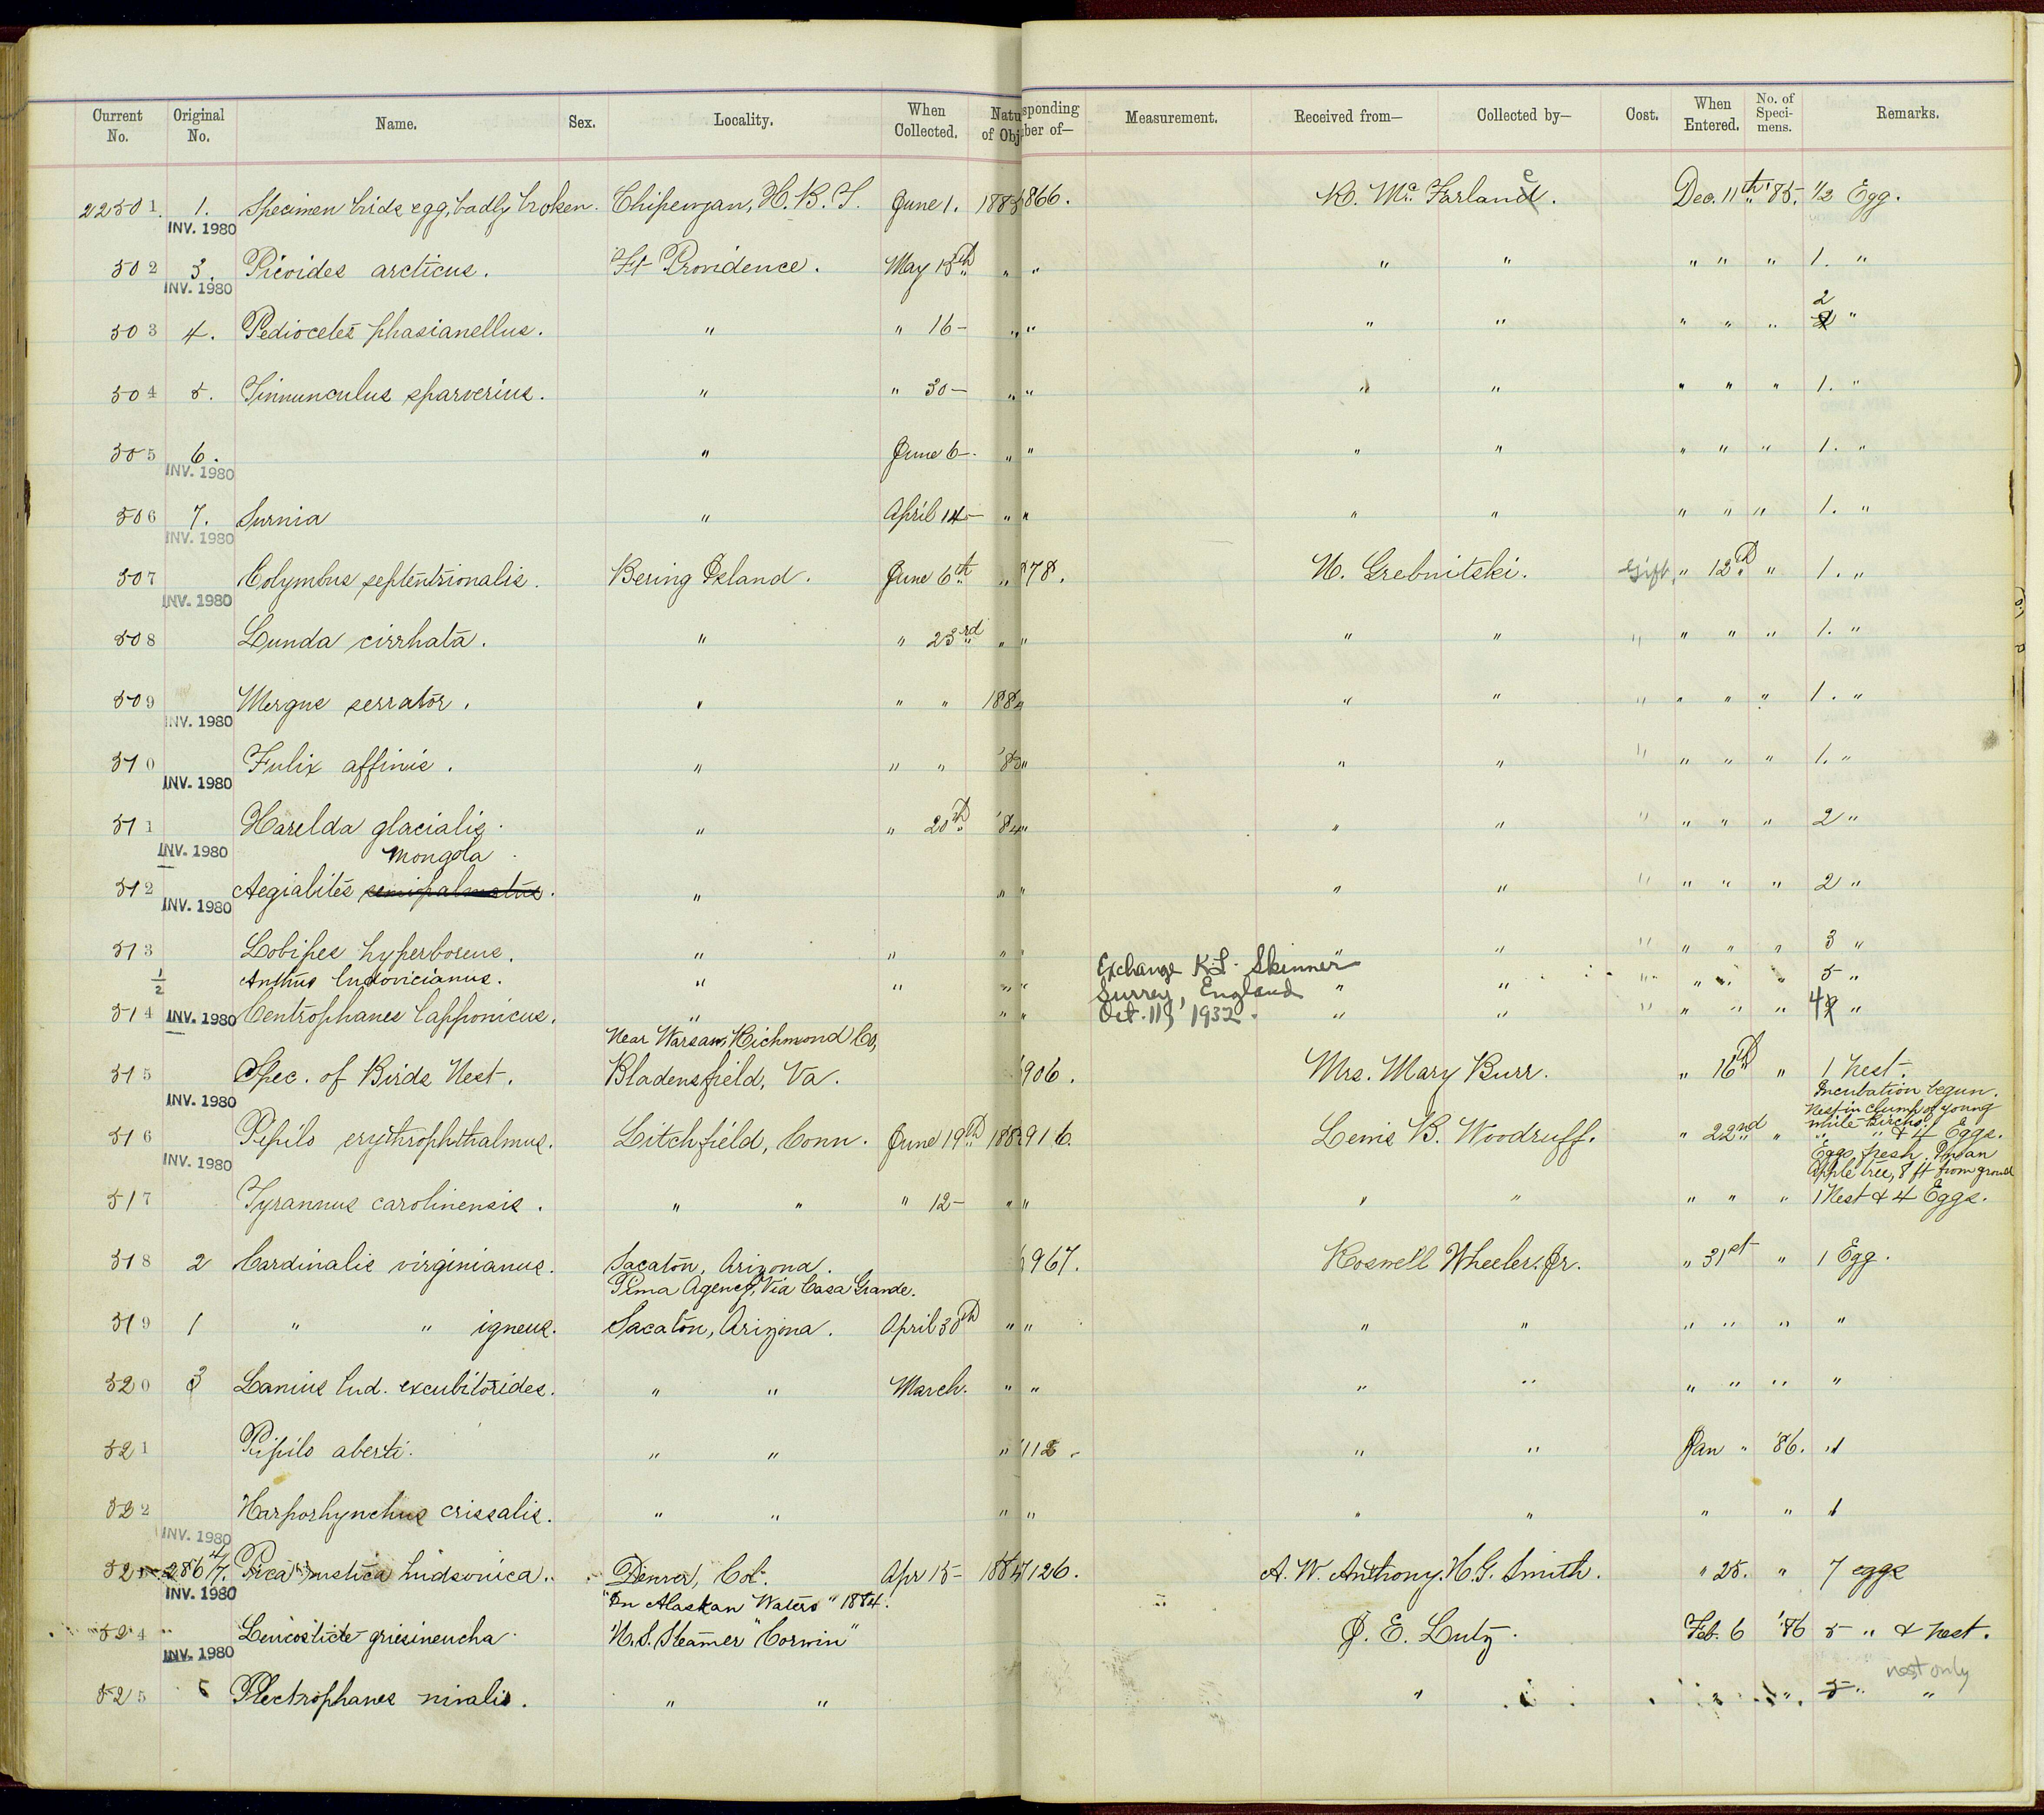 Current No. Original No. Name. Sex. Locality. When Collected. Natu of Obj sponding ber of— Measurement. Received from— Collected by— Cost. When Entered. No. of Speci-mens. Remarks.
22501. 1. Specimen birds egg, badly broken. Chipewyan, H. B. T. June 1. 1885 866. R. McFarlane. Dec. 11th '85. 1/2 Egg.
INV. 1980
502 3. Picoides arcticus. Ft Providence. May 15th " " " " " " " 1. "
INV. 1980
2
503 4. Pediocetes phasianellus. " " 16— " " " " " " " "
504 5. Tinnunculus sparverius. " " 30— " " " " " " " 1. "
505 6. " June 6— " " " " " " " 1. "
INV. 1980
506 7. Surnia " April 14— " " " " " " " 1. "
INV. 1980
507 Colymbus septentrionalis. Bering Island. June 6th " 78. N. Grebnitski. Gift, " 12th " 1. "
INV. 1980
508 Lunda cirrhata. " " 23rd " " " " " " " " 1. "
509 Mergus serrator. " " " 1884 " " " " " " 1. "
INV. 1980
510 Fulix affinis. " " " '83 " " " " " " " 1. "
INV. 1980
511 Harelda glacialis. " " 20th '84 " " " " " " " 2 "
INV. 1980
Mongola
512 Aegialites semipalmatus. " " " " " " " " " 2 "
INV. 1980
513 Lobipes hyperboreus. " " " " " " " " " " 3 "
1/2 Anthus ludovicianus. " " " " Exchange K. L. Skinner " " " " " 5 "
Surrey, England
514 INV. 1980 Centrophanes lapponicus. " " " Oct. 11, 1932. " " " " " " 4 "
Near Warsaw, Richmond Co,
515 Spec. of Birds Nest. Bladensfield, Va. 906. Mrs. Mary Burr. " 16th " 1 Nest.
INV. 1980
Incubation begun.
Nest in clump of young
white Birchs.
516 Pipilo erythrophthalmus. Litchfield, Conn. June 19th 188 916. Lewis B. Woodruff. " 22nd " " " & 4 Eggs.
INV. 1980
Eggs fresh. In an
Apple tree, 8 ft from ground
517 Tyrannus carolinensis. " " " 12— " " " " " " " 1 Nest & 4 Eggs.
518 2 Cardinalis virginianus. Sacaton, Arizona. 967. Roswell Wheeler. Jr. " 31st " 1 Egg.
Pima Agency, Via Casa Grande.
519 1 " " igneus. Sacaton, Arizona. April 30th " " " " " " " "
520 3 Lanius lud. excubitorides. " " March. " " " " " " " "
521 Pipilo aberti. " " " 112. " " Jan " '86. "
522 Harporhynchus crissalis. " " " " " " " " 1
INV. 1980
523 Pica rustica hudsonica. Denver, Col. Apr 15— 1885 7126. A. W. Anthony. H. G. Smith. " 25. " 7 eggs
INV. 1980
"In Alaskan Waters" 1884.
524 Leucosticte griseinucha. "U. S. Steamer "Corwin" J. E. Lutz. Feb. 6 '86 5 " & nest.
INV. 1980
nest only
525 Plectrophanes nivalis. " " " 5 " "